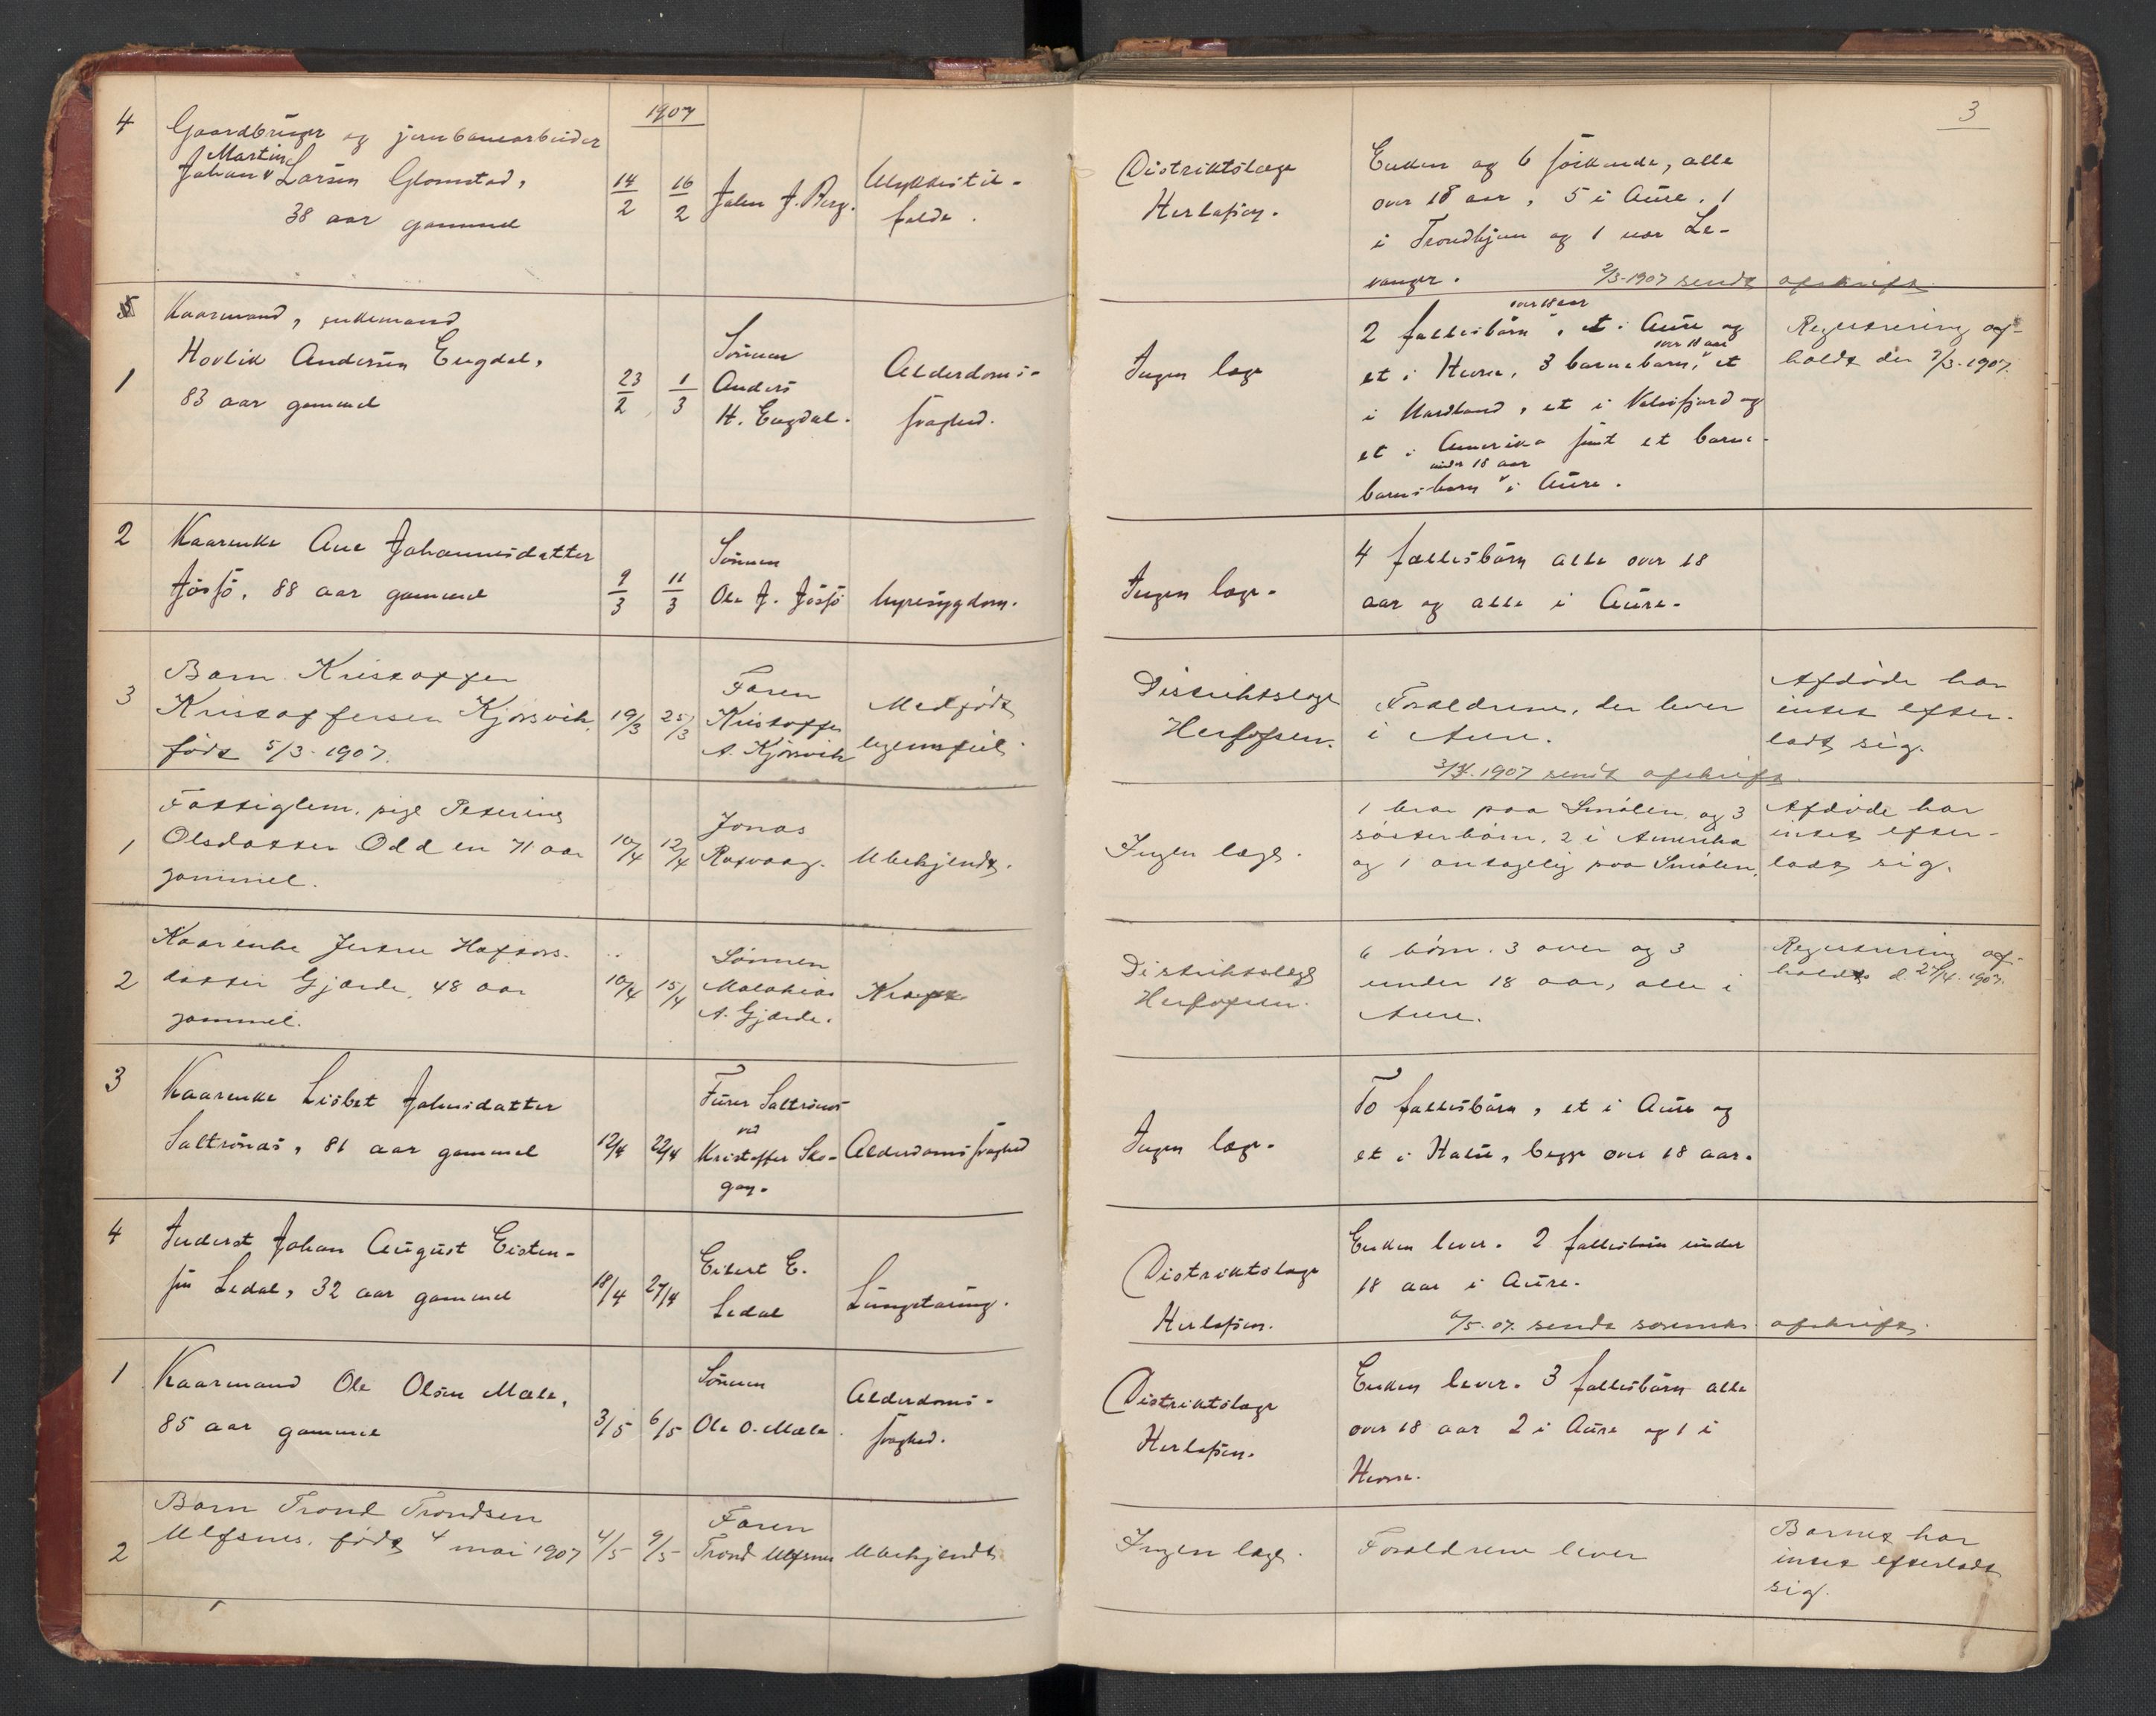 1907
3
4
Gaardbruger og jernbanearbeider
Martin
Johan v Larsen Glomstad,
38 aar gammel
14/2
16/2
John J. Berg.
Ulykkestil-
fælde.
Distriktslæge
Herlofsen.
Enken og 6 søskende, alle
over 18 aar, 5 i Aure, 1
i Trondhjem og 1 nær Le-
vanger.
2/3-1907 sendt afskrift
5
1
Kaarmand, enkemand
Hovlik Andersen Engdal,
83 aar gammel
23/2
1/3
Sönnen
Anders
H. Engdal.
Alderdoms-
svaghed.
Ingen læge
over 18 aar
2 fællesbörn v, et i Aure og
over 18 aar
et i Hevne, 3 barnebarn, v et
i Nordland, et i Velvifjord og
et i Amerika samt et barne-
under 18 aar
barnsbarn v i Aure.
Registrering af-
holdt den 7/3-1907.
2
Kaarenke Ane Johannesdatter
Jösjö, 88 aar gammel
9/3
11/3
Sönnen
Ole J. Jösjö
Nyresygdom.
Ingen læge.
4 fællesbörn alle over 18
aar og alle i Aure.
3
Barn Kristoffer
Kristoffersen Kjörsvik,
födt 5/3-1907.
19/3
25/3
Faren
Kristoffer
A. Kjörsvik
Medfödt
legemsfeil.
Distriktslæge
Herlofsen.
Forældrene, der lever
i Aure.
Afdöde har
intet efter-
ladt sig.
3/4-1907 sendt afskrift
1
Fattiglem, pige Peterine
Olsdatter Odden 71 aar
gammel.
10/4
12/4
Jonas
Roksvaag.
Ubekjendt.
Ingen læge.
1 bror paa Smölen og 3
sösterbörn, 2 i Amerika
og 1 antagelig paa Smölen.
Afdöde har
intet efter-
ladt sig.
2
Kaarenke Jertru Haftors-
datter Gjærde, 48 aar
gammel.
10/4
15/4
Sönnen
Malakias
A. Gjærde.
Kræft
Distriktslæge
Herlofsen.
6 börn. 3 over og 3
under 18 aar, alle i
Aure.
Registrering af-
holdt d. 27/4. 1907.
3
Kaarenke Lisbet Johnsdatter
Saltrönas, 81 aar gammel
12/4
22/4
Furer Saltrönas
ved
Kristoffer Sko-
gan.
Alderdomssvaghed
Ingen læge.
To fællesbörn, et i Aure og
et i Halse, begge over 18 aar.
4
Inderst Johan August Eisten-
sen Ledal, 32 aar gammel
18/4
27/4
Eilert E.
Ledal
Lungetæring.
Distriktslæge
Herlofsen.
Enken lever. 2 fællesbörn under
18 aar i Aure.
6/5.07. sendt afskrift.
1
Kaarmand Ole Olsen Mæle,
85 aar gammel
3/5
6/5
Sönnen
Ole O. Mæle.
Alderdoms-
svaghed.
Distriktslæge
Herlofsen.
Enken lever. 3 fællesbörn alle
over 18 aar 2 i Aure og 1 i
Hevne.
2
Barn Trond Trondsen
Ulfsnes, födt 4 mai 1907
4/5
9/5
Faren
Trond Ulfsnes
Ubekjendt
Ingen læge.
Forældrene lever
Barnet har
intet efterladt
sig.